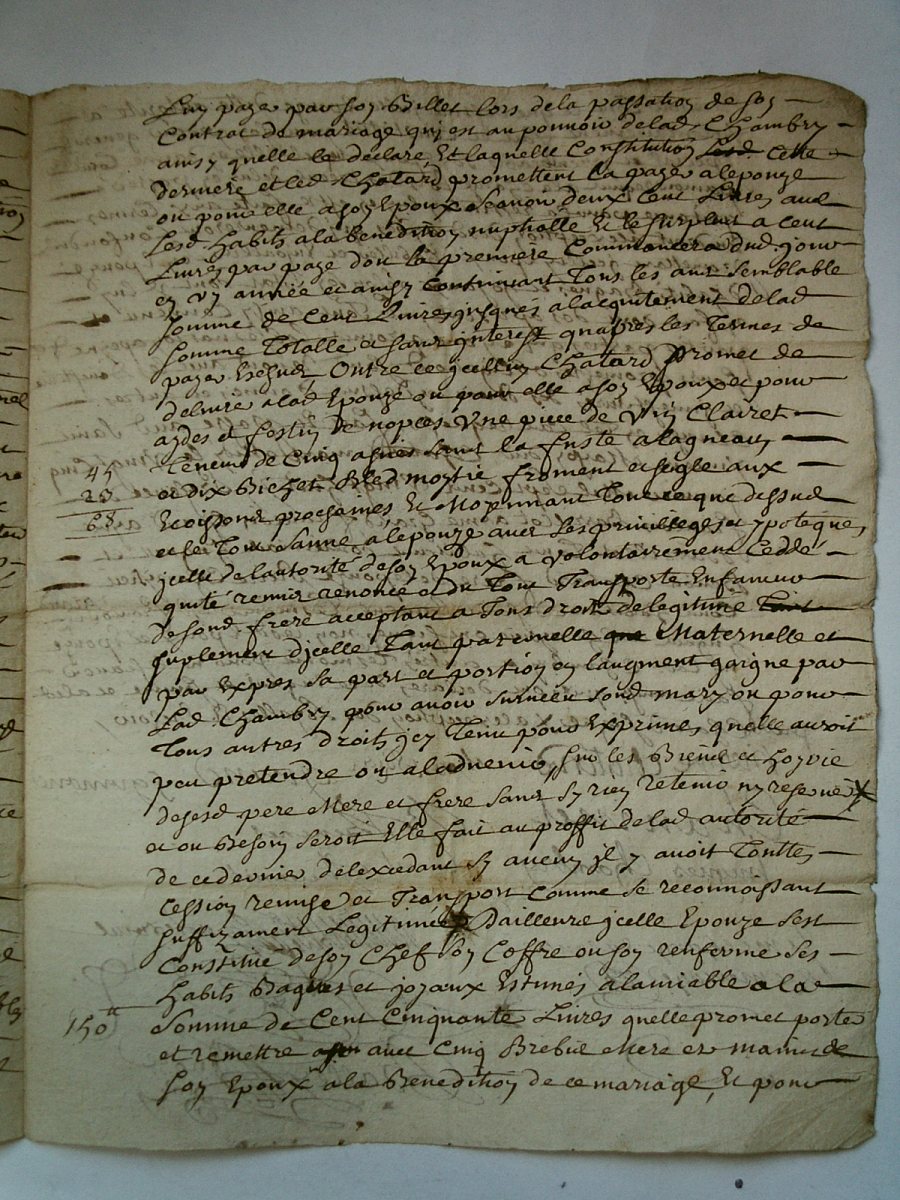 Luy paye par son Billet lors de la passation de son
Contrat de mariage qui est au pouvoir de lad. Chambry
ainsy quelle le declare, Et laquelle Constitution cette
derniere et led. Chatard promettent la payer a lepouze
ou pour elle a son Epoux scavoir deux Cent Livres avec
Lesd. habits a la Benediction nuptialle Et le surplus a cent
Livres par paye dont la premiere Commancera dud. jour
en un année et ainsy Continuant Tous les ans semblable
somme de Cent Livres jusques a lacquitement de lad
somme Totalle a sans interest quapres les Termes de
paye Escheus, Outre ce jcelluy Chatard promet de
delivré a lad Epouze ou pour elle a son Epoux et pour
aydes et festin de nopces Une piece de Vin Clairet
Teneur de Cinq asnés sans la fuste a lagneau,
45
23
68
et dix Bichet Bled moytié froment et segle aux
Moissons prochaines Et Moyennant Tout ce que dessus
et le Tout Sanné a lepouze avec les privilleges et ypoteque,
jcelle de lautorité de son Epoux a volontairement Ceddé
quité remis renoncé et du Tout Transporté En faveur
de sond. frere acceptant a Tous droits de legitime
suplement djcelle Tant paternelle que Maternelle et
par Expres sa part et portion en laugment gaigné par
Lad. Chambry pour avoir survecu sond mary ou pour
Tous autres droits jcy Tenu pour Exprimes, quelle auroit
peu pretendre ou a ladvenir, sur les Biens et hoyrie
de sesd. pere Mere et frere sans sy rien retenir ny reservé X
et ou Besoin seroit Elle fait au proffit de lad autorité
de ce dernier de lexcedant sy aucun jl y avoit Touttes
cession remise et Transport Comme se reconnoissant
suffizament Legitimée Dailleurs jcelle Epouze sest
Constitué de son Chef son Coffre ou son renfermé ses
habits Bagues et joyaux Estimés a lamiable a la
150tt
Somme de Cent Cinquante Livres quelle promet porte
et remettre avec Cinq Brebis Mere es mains de
son Epoux a la Benediction de ce mariage, Et pour